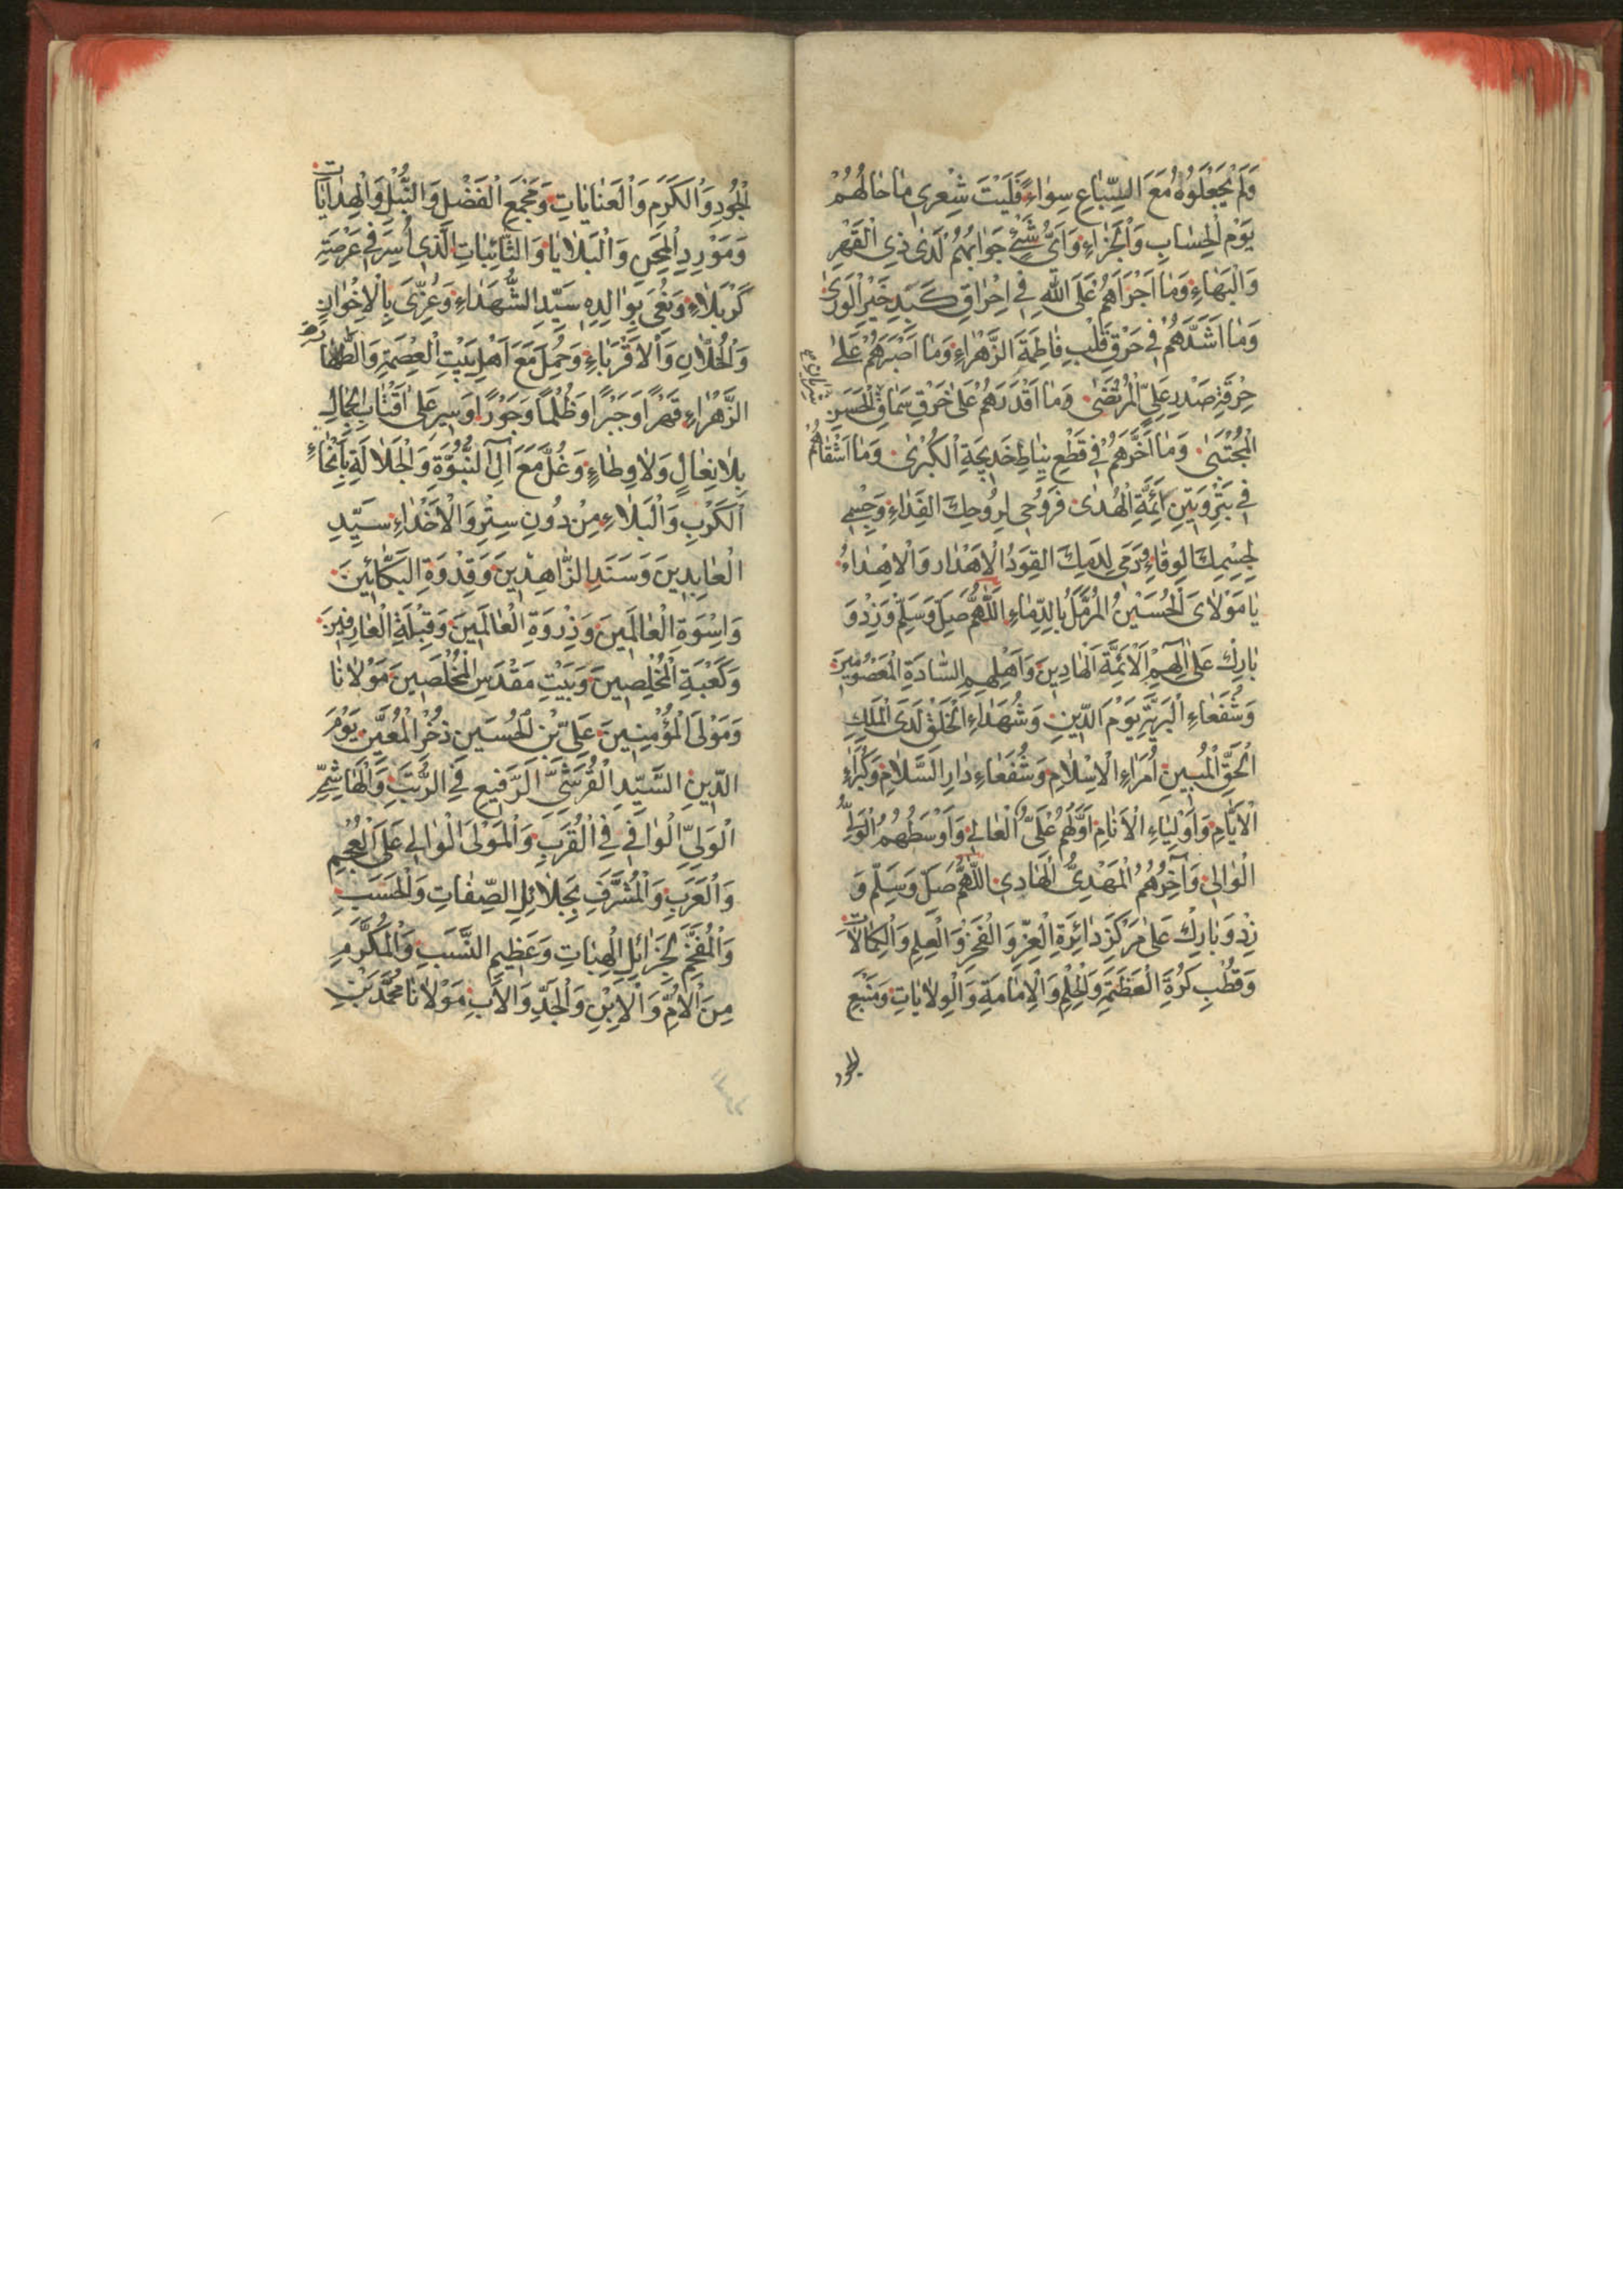 وَلَمْ يَجْعَلُوهُ مَعَ السِّبَاعِ سِوَاءً فَلَيْتَ شِعْرِى مَا حَالُهُمْ
يَوْمَ الْحِسَابِ وَالْجَزَاءِ وَاَىُّ شَىْءٍ جَوَابُهُمْ لَدَى ذِى الْقَهْرِ
وَالْبَهَاءِ وَمَا اَجْرَاَهُمْ عَلَى اللّٰهِ فِى اِحْرَاقِ كَبِدِ خَيْرِ الْوَرَى
وَمَا اَشَدَّهُمْ فِى حَرْقِ قَلْبِ فَاطِمَةَ الزَّهْرَاءِ وَمَا اَصْبَرَهُمْ عَلَى
حِرْقَةِ صَدْرِ عَلِىٍّ الْمُرْتَضَى وَمَا اَقْدَرَهُمْ عَلَى خَرْقِ الْحَسَنِ
الْمُجْتَبَى وَمَا اَخَّرَهُمْ فِى قَطْعِ نِيَاطِ خَدِيجَةِ الْكُبْرَى وَمَا اَشْقَاهُمْ
فِى اَئِمَّةِ الْهُدَى فَرُوحِى لِرُوحِكَ الْفِدَاءِ وَجِسْمِى
لِجِسْمِكَ الْوِقَاءِ وَدَمِى لِدَمِكَ الْقِوَدُ الْاِهْدَارِ وَالْاِهْدَاءُ
يَا مَوْلَاىَ الْحُسَيْنُ الْمُرَمَّلُ بِالدِّمَاءِ اَللّٰهُمَّ صَلِّ وَسَلِّمْ وَزِدْ وَ
بَارِكْ عَلَى اٰلِهِمْ اَلْاَئِمَّةِ الْهَادِينَ وَاَهْلِهِمِ السَّادَةِ الْمَعْصُومِينَ
وَشُفَعَاءِ الْبَرِيَّةِ يَوْمَ الدِّينِ وَشُهَدَاءِ الْخَلْقِ لَدَى الْمَلِكِ
الْحَقِّ الْمُبِينِ اُمَرَاءِ الْاِسْلَامِ وَشُفَعَاءِ دَارِ السَّلَامِ وَكُبَرَاءِ
الْاَيَّامِ وَاَوْلِيَاءِ الْاَنَامِ اَوَّلُهُمْ عَلِىُّ الْعَالِى وَاَوْسَطُهُمُ الْوَلِىُّ
الْوَالِى وَآخِرُهُمُ الْمَهْدِىُّ الْهَادِى اَللّٰهُمَّ صَلِّ وَسَلِّمْ وَ
زِدْ وَبَارِكْ عَلَى مَرْكَزِ دَائِرَةِ الْعِزِّ وَالْفَخْرِ وَالْعِلْمِ وَالْكَمَالَاتِ
وَقُطْبِ كُرَةِ الْعَظَمَةِ وَالْحِلْمِ وَالْاِمَامَةِ وَالْوِلَايَاتِ وَمَنْبَعِ
الجود
الْجُودِ وَالْكَرَمِ وَالْعَنَايَاتِ وَمَجْمَعِ الْفَضْلِ وَالنُّبْلِ وَالْهِدَايَاتِ
وَمَوْرِدِ الْمِحَنِ وَالْبَلَايَا وَالنَّائِبَاتِ الَّذِى اُسِرَ فِى عَرْصَةِ
كَرْبَلَاءِ وَنُعِىَ بِوَالِدِهِ سَيِّدِ الشُّهَدَاءِ وَعُزِّىَ بِالْاِخْوَانِ
وَالْخُلَّانِ وَالْاَقْرَبَاءِ وَحُمِلَ مَعَ اَهْلِ بَيْتِ الْعِصْمَةِ وَالطَّهَارَةِ
الزَّهْرَاءِ قَهْرًا وَجَبْرًا وَظُلْمًا وَجَوْرًا وَسِيرَ عَلَى اَقْتَابِ الْجِمَالِ
بِلَا نِعَالٍ وَلَا وِطَاءٍ وَغُلَّ مَعَ آلِ النُّبُوَّةِ وَالْجَلَالَةِ بِاَنْحَاءِ
الْكَرْبِ وَالْبَلَاءِ مِنْ دُونِ سِتْرٍ وَالْاَخْدَاءِ سَيِّدِ
الْعَابِدِينَ وَسَنَدِ الزَّاهِدِينَ وَقِدْوَةِ الْبَكَّائِينَ
وَاِسْوَةِ الْعَالَمِينَ وَذِرْوَةِ الْعَالَمِينَ وَقِبْلَةِ الْعَارِفِينَ
وَكَعْبَةِ الْمُخْلِصِينَ وَبَيْتِ مَقْدَسِ الْمُخْلَصِينَ مَوْلَانَا
وَمَوْلَى الْمُؤْمِنِينَ عَلِىِّ بْنِ الْحُسَيْنِ ذُخْرِ الْمُعِينِ يَوْمَ
الدِّينِ السَّيِّدِ الْقُرَشِىِّ الرَّفِيعِ فِى الرُّتَبِ وَالْهَاشِمِىِّ
الْوَلِىِّ الْوَافِى فِى الْقُرَبِ وَالْمَوْلَى الْوَالِى عَلَى الْعُجْمِ
وَالْعَرَبِ وَالْمُشَرَّفِ بِجَلَائِلِ الصِّفَاتِ وَالْحَسَبِ
وَالْمُفَخَّمِ بِجَزَائِلِ الْهِبَاتِ وَعَظِيمِ النَّسَبِ وَالْمُكَرَّمِ
مِنَ الْاُمِّ وَالْاِبْنِ وَالْجَدِّ وَالْاَبِ مَوْلَانَا مُحَمَّدِ بْنِ